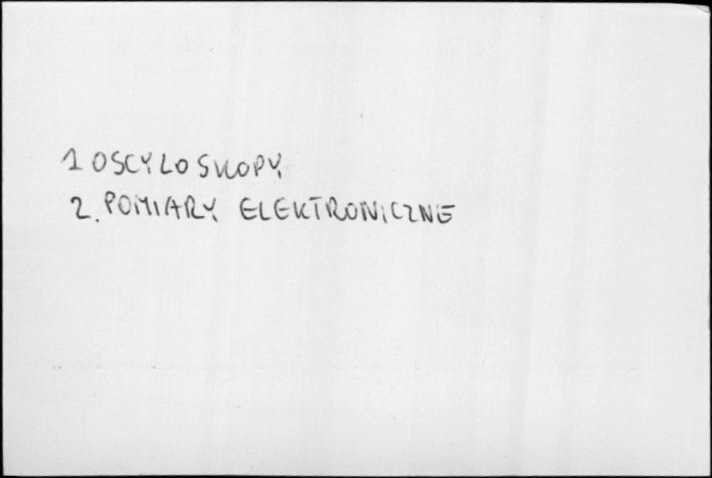 1 OSCYLOSKOPY
2. POMIARY ELEKTRONICZNE